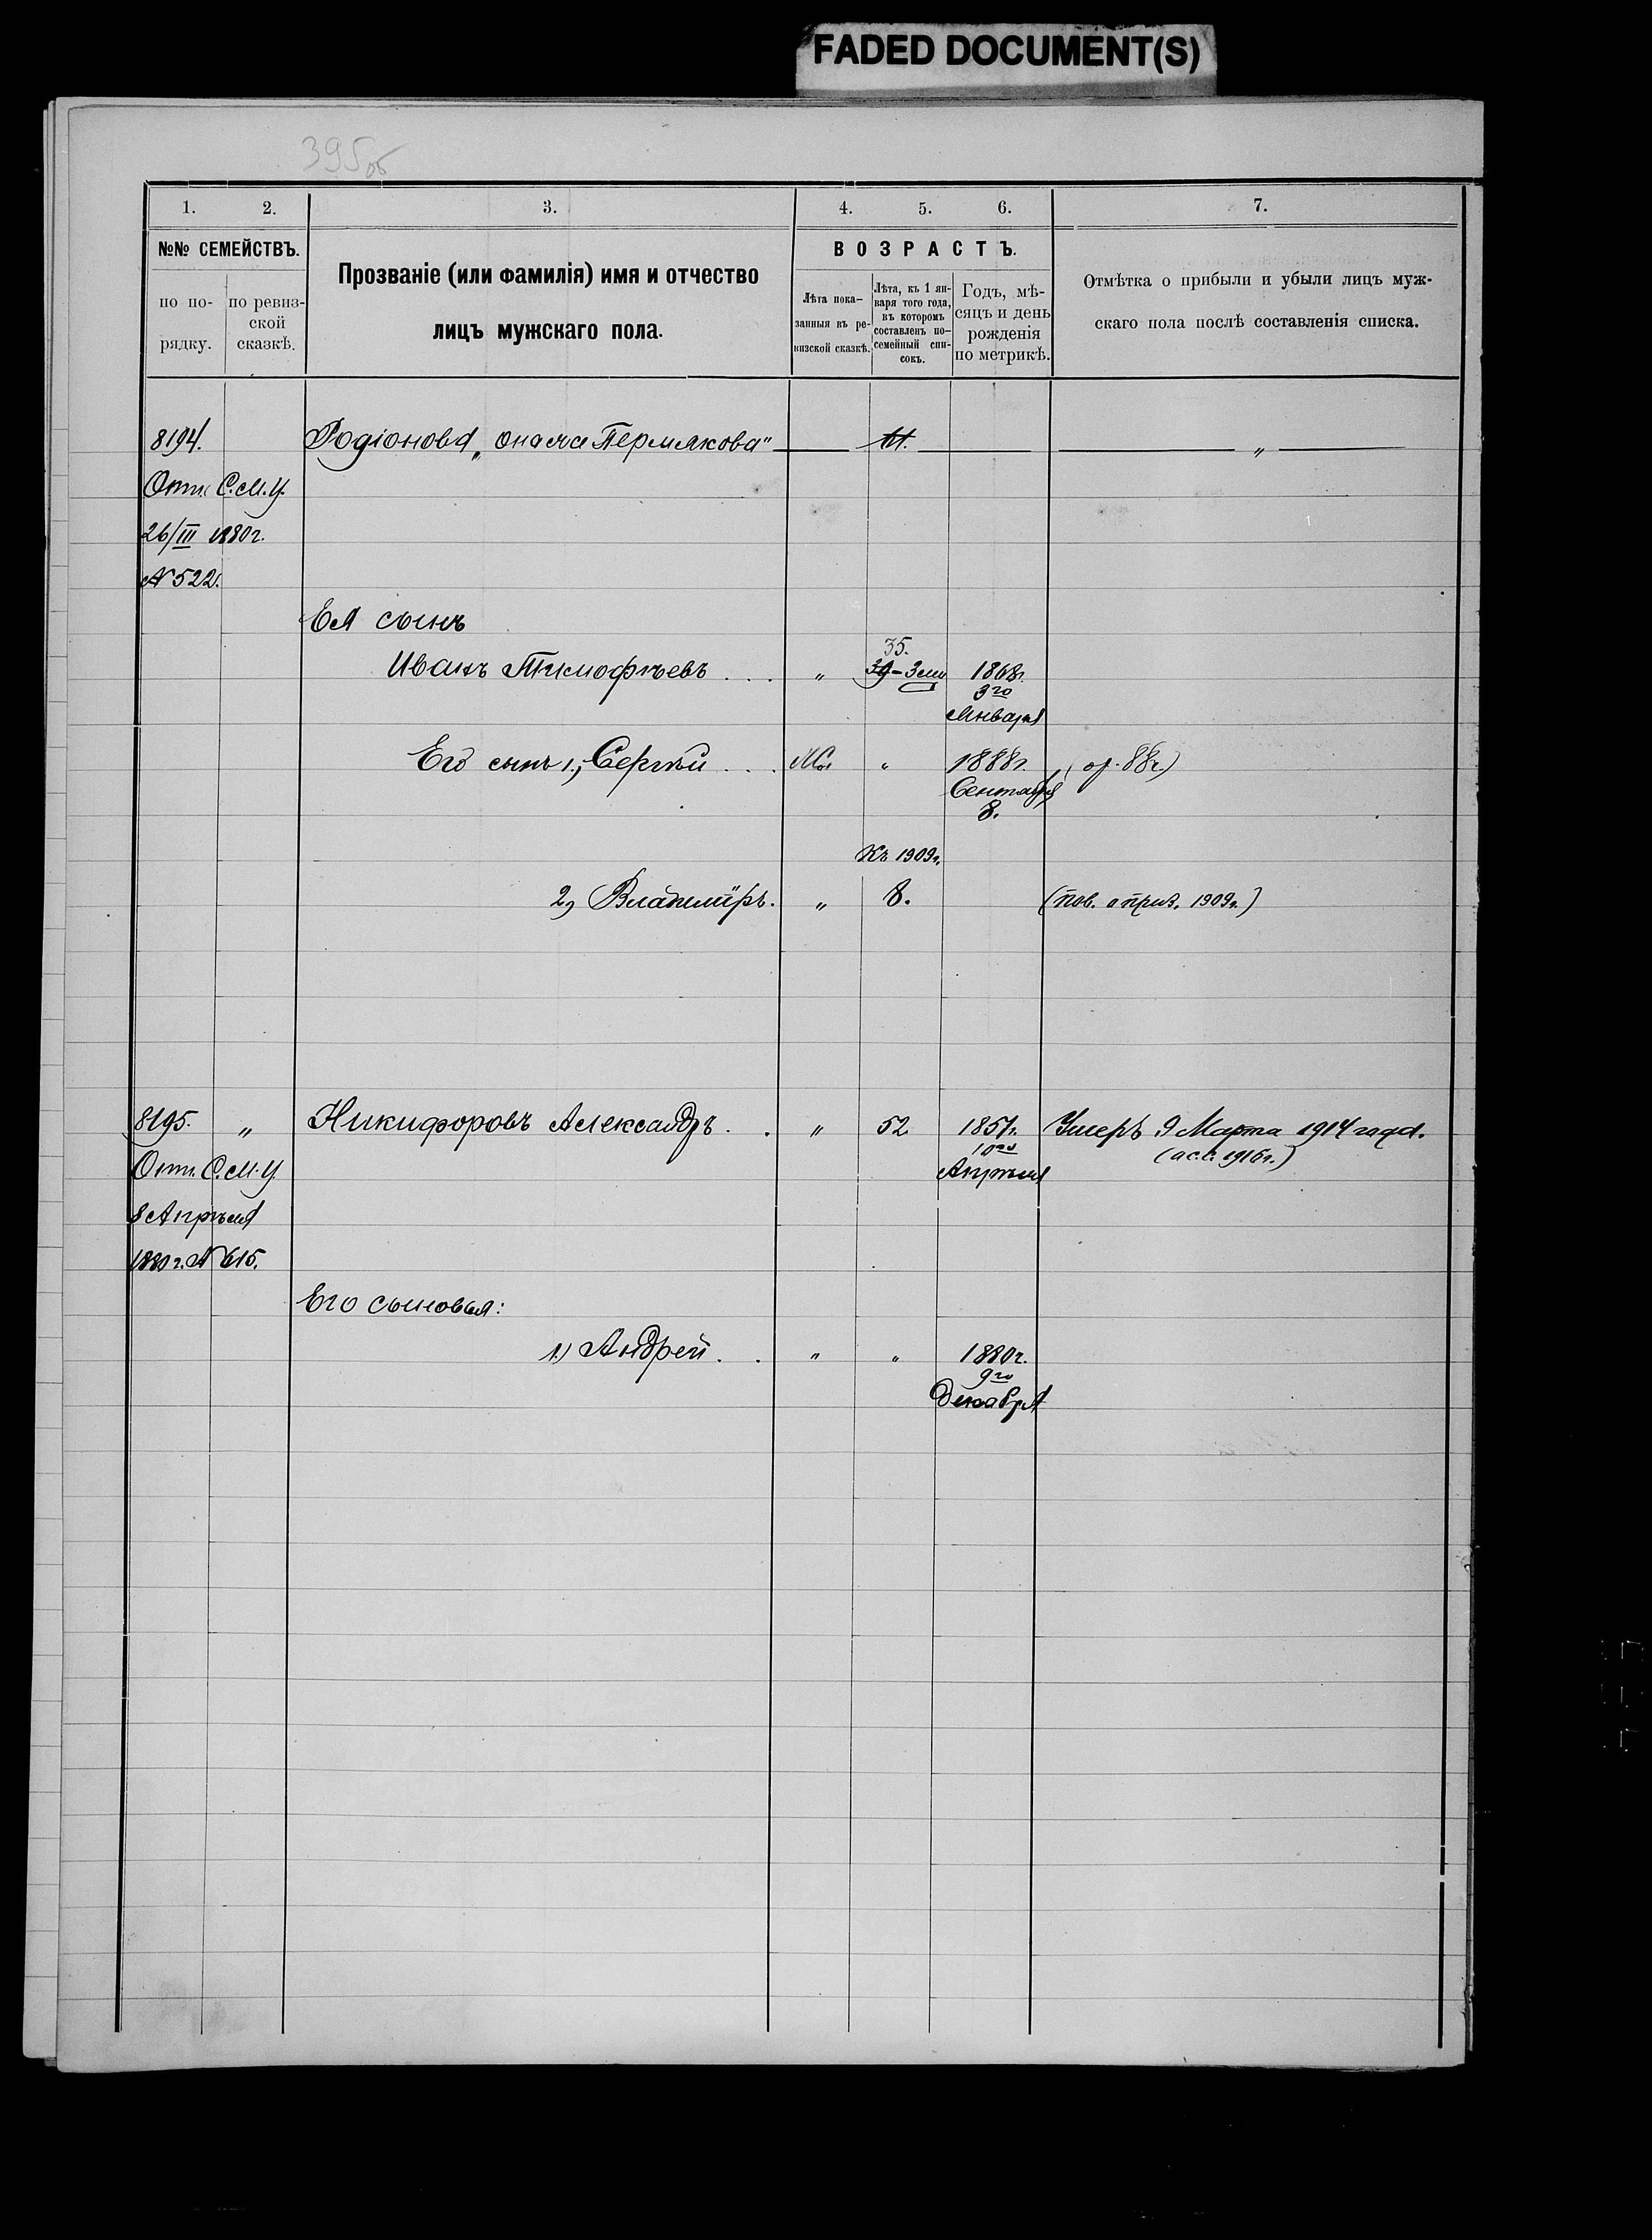 FADED DOCUMENT(S)
395об
1. 2. 3. 4. 5. 6. 7.
№№ СЕМЕЙСТВЪ.
по по-
рядку.
по ревиз-
ской
сказкѣ.
Прозваніе (или фамилія) имя и отчество
лицъ мужскаго пола.
ВОЗРАСТЪ.
Лѣта пока-
занныя въ ре-
визской сказкѣ.
Лѣта, къ 1 ян-
варя того года,
въ которомъ
составленъ по-
семейный спи-
сокъ.
Годъ, мѣ-
сяцъ и день
рожденія
по метрикѣ.
Отмѣтка о прибыли и убыли лицъ муж-
скаго пола послѣ составленія списка.
8194. Родіонова „она же Пермякова" „
Отн. С.М.У.
26/III 1880г.
№ 522.
Ея сынъ
35.
Иванъ Тимофѣевъ . . . „ 1868г.
3го
Января
Его сынъ 1, Сергѣй . . . „ 1888г. 88г)
Сентября
8.
Къ 1909г.
2, Владиміръ. „ 8. (пов. о приз. 1909г.)
8195. „ Никифоровъ Александръ . . „ 52 1857г. Умеръ 9 Марта 1914 года.
10го (ас.с. 1916г.)
Апрѣля
Отн. С.М.У.
8 Апрѣля
1880г. № 615.
Его сыновья:
1.) Андрей . . „ „ 1880г.
9го
Декабря